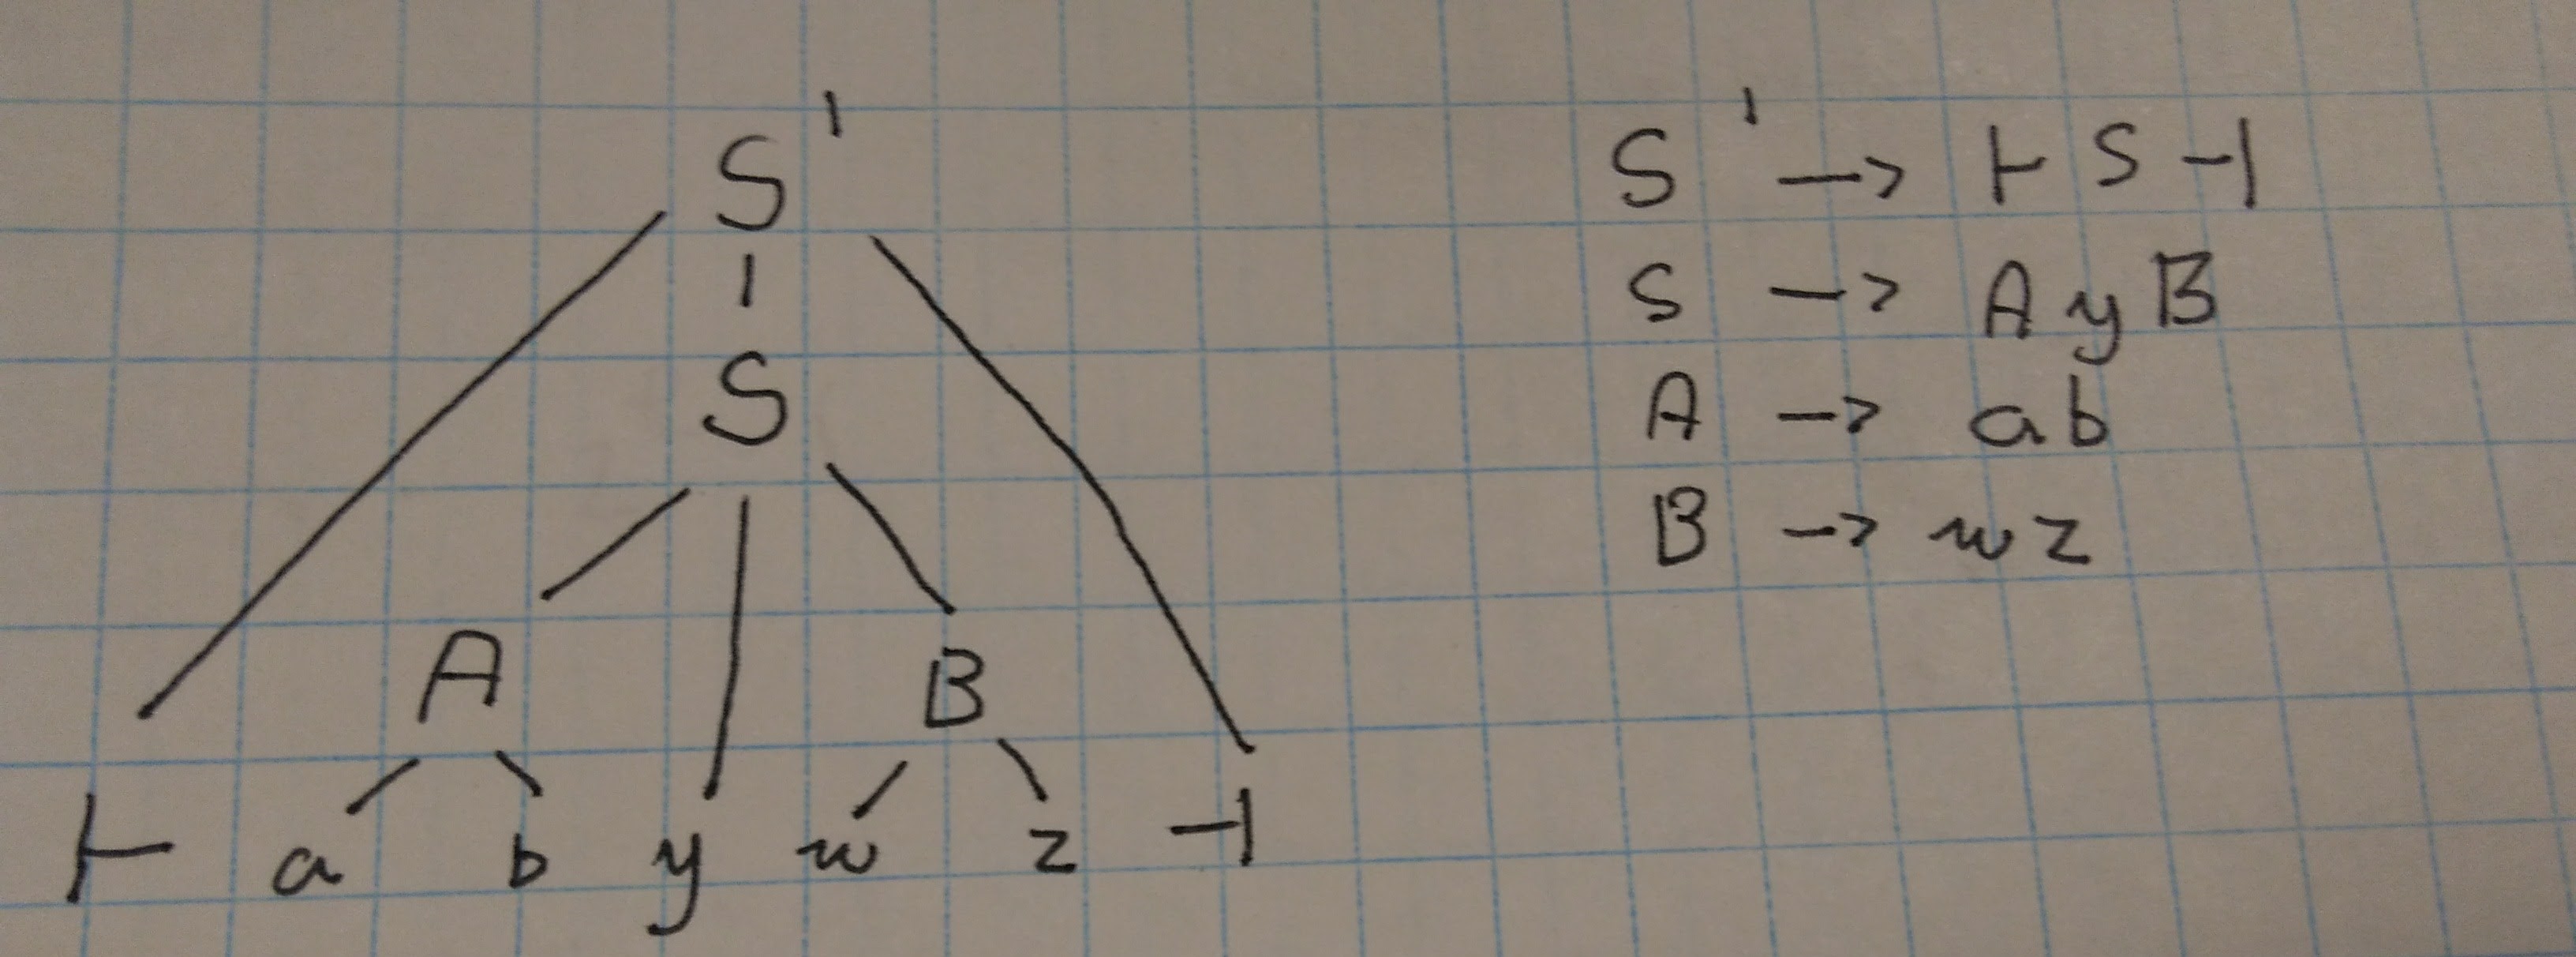 S'
S
A B
⊢ a b y w z ⊣
S' -> ⊢ S ⊣
S -> A y B
A -> a b
B -> w z